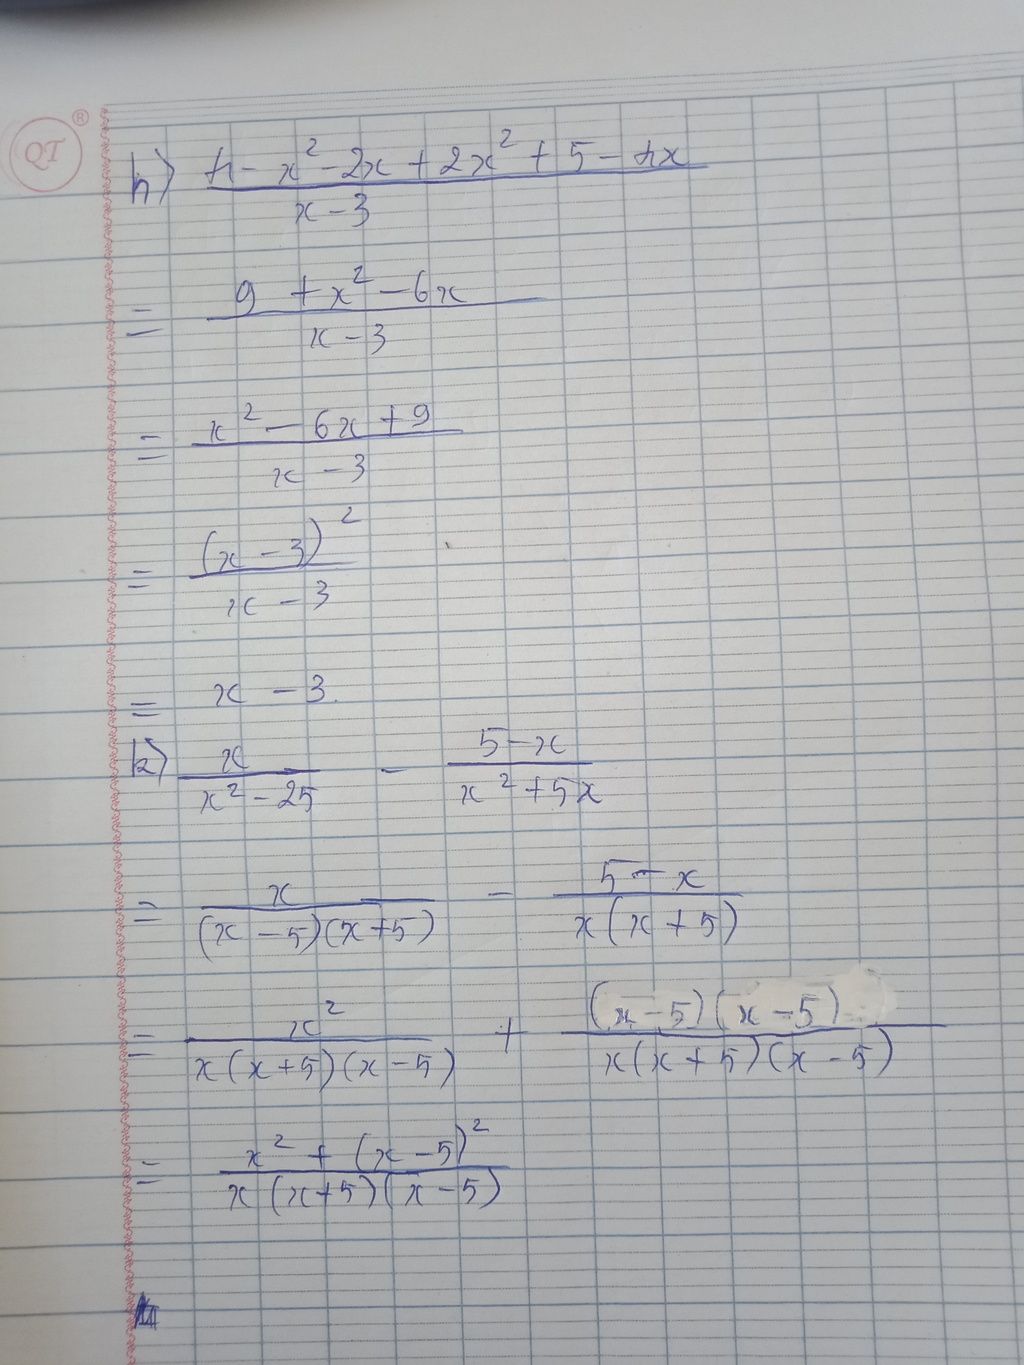 QT ®
h) (4 - x² - 2x + 2x² + 5 - 4x) / (x - 3)
= (9 + x² - 6x) / (x - 3)
= (x² - 6x + 9) / (x - 3)
= (x - 3)² / (x - 3)
= x - 3.
k) x / (x² - 25) - (5 - x) / (x² + 5x)
= x / ((x - 5)(x + 5)) - (5 - x) / (x(x + 5))
= x² / (x(x + 5)(x - 5)) + ((x - 5)(x - 5)) / (x(x + 5)(x - 5))
= (x² + (x - 5)²) / (x(x + 5)(x - 5))